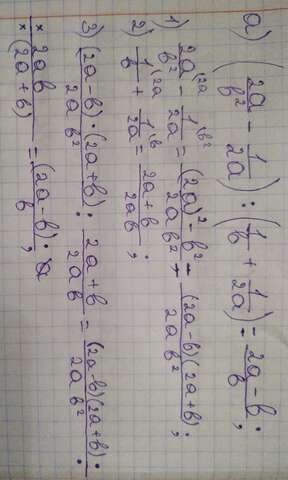 а) (2a/b² - 1/2a) : (1/b + 1/2a) = (2a-b)/b;
1) 2a/b² (2a - 1/2a (b² = ((2a)² - b²)/2ab² = ((2a-b)(2a+b))/2ab²;
2) 1/b (2a + 1/2a (b = (2a+b)/2ab;
3) ((2a-b)·(2a+b))/2ab² : (2a+b)/2ab = ((2a-b)(2a+b))/2ab² ·
× 2ab/(2a+b) = (2a-b)/b;